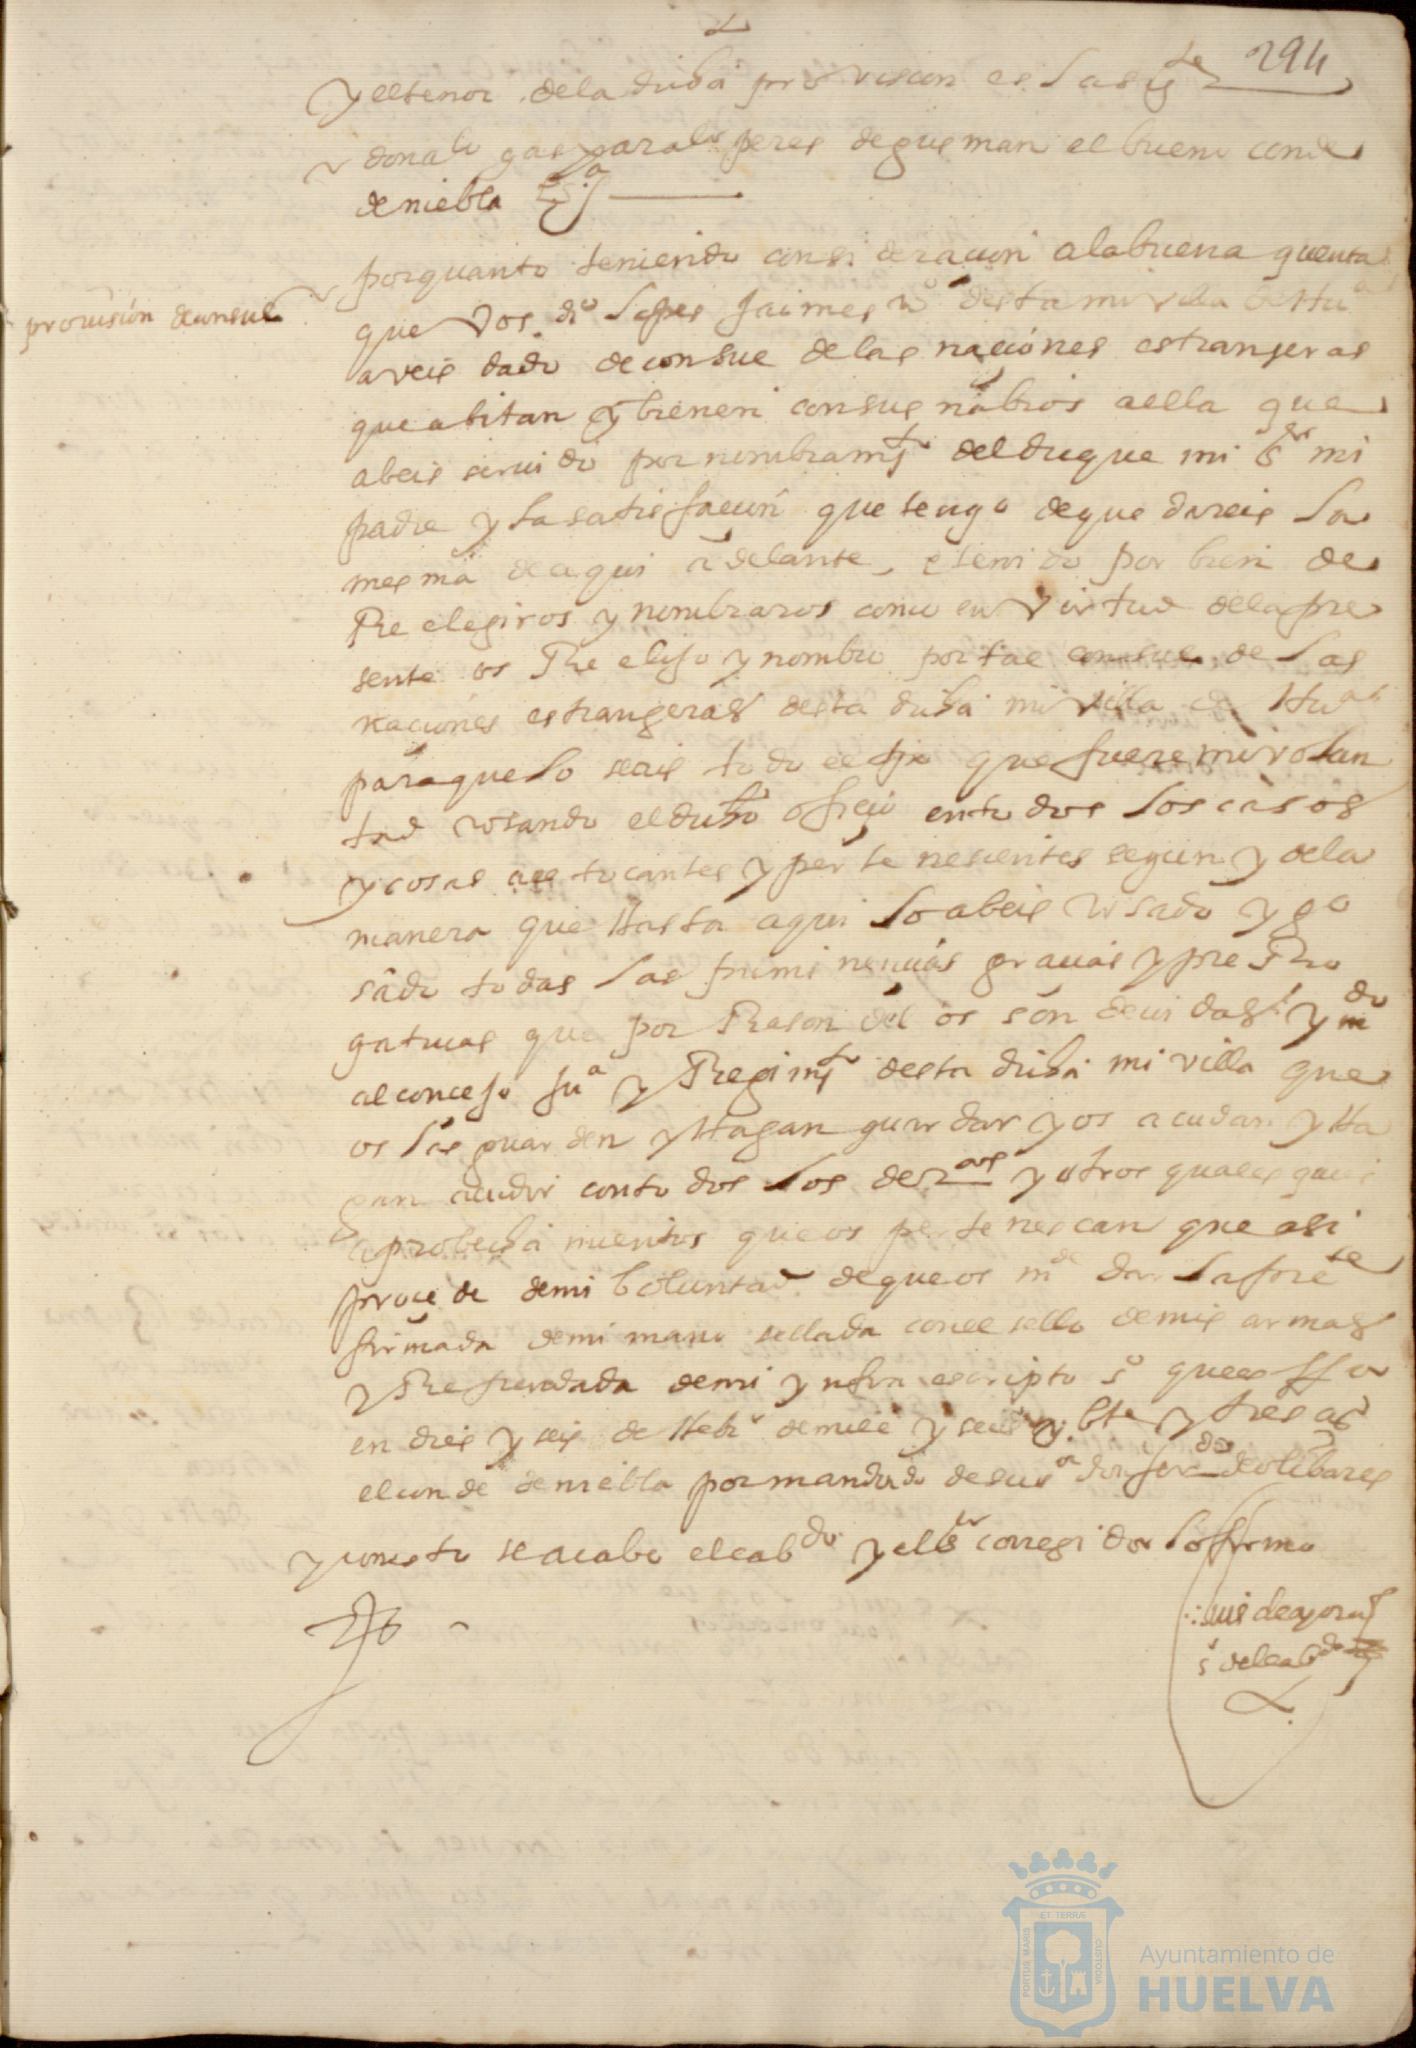 294
y el tenor de la dicha provision es la sigte
don alo gaspar alo peres de gusman el bueno conde
de niebla
provision de consul
porquanto teniendo consideracion a la buena quenta
que vos do lopes jaimes vo desta mi villa de Hua
aveis dado de consul de las naciones estranjeras
que abitan y bienen con sus nabios a ella que
abeis seruido por nombramto del duque mi sor mi
padre y la satisfacion que tengo de que dareis la
mesma de aqui adelante, e tenido por bien de
Re elegiros y nombraros como en virtud de la pre
sente os Re elijo y nombro por tal consul de las
naciones estrangeras desta dicha mi villa de Hua
para que lo seais todo el tpo que fuere mi volun
tad vsando el dicho oficio en todos los casos
y cosas a el tocantes y pertenesientes segun y de la
manera que Hasta aqui lo abeis vsado y go
sado todas las preminencias gracias y pre Rro
gatiuas que por Rason del os son deuidas y mdo
al concejo jua y Regimto desta dicha mi villa que
os las guarden y Hagan guardar y os acudan y Ha
gan acudir con todos los deros y otros quales quier
aprobechamientos que os pertenescan que asi
procede de mi boluntad de que os mde dar la prete
firmada de mi mano sellada con el sello de mis armas
y Refrendada de mi ynfra escripto so que es ffa
en dies y seis de Hebro de mill y seiso y bte y tres as
el conde de niebla por mandado de su sa don ferdo de olibares
y con esto se acabo el cabdo y el sor corregidor lo firmo
luis de ayora
so del cabdo
ET TERRÆ
PORTUS MARIS
CUSTODIA
Ayuntamiento de
HUELVA